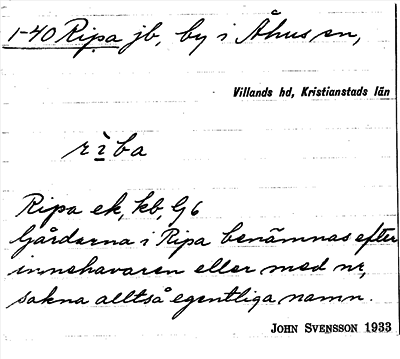 1-40 Ripa jb, by i Åhus sn,
Villands hd, Kristianstads län
rìba
Ripa ek, kb, G6
Gårdarna i Ripa benämnas efter
innehavaren eller med nr,
sakna alltså egentliga namn.
JOHN SVENSSON 1933